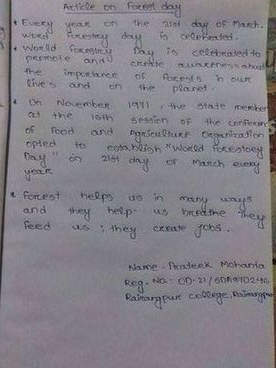 Article on Forest day
* Every year on the 21st day of March.
world forestry day is celebrated.
* World Forestry Day is celebrated to
promote and create awareness about
the importance of Forests in our
lives and on the planet.
* On November 1971, the state member
at the 16th session of the conference
of Food and Agriculture Organization
opted to establish "World Forestory
Day" on 21st day of March every
year
* Forest helps us in many ways
and they help us breathe they
feed us, they create jobs.
Name - Prateek Mohanta
Reg. No: OD-21/SDA
Rairangpur College, Rairangpur